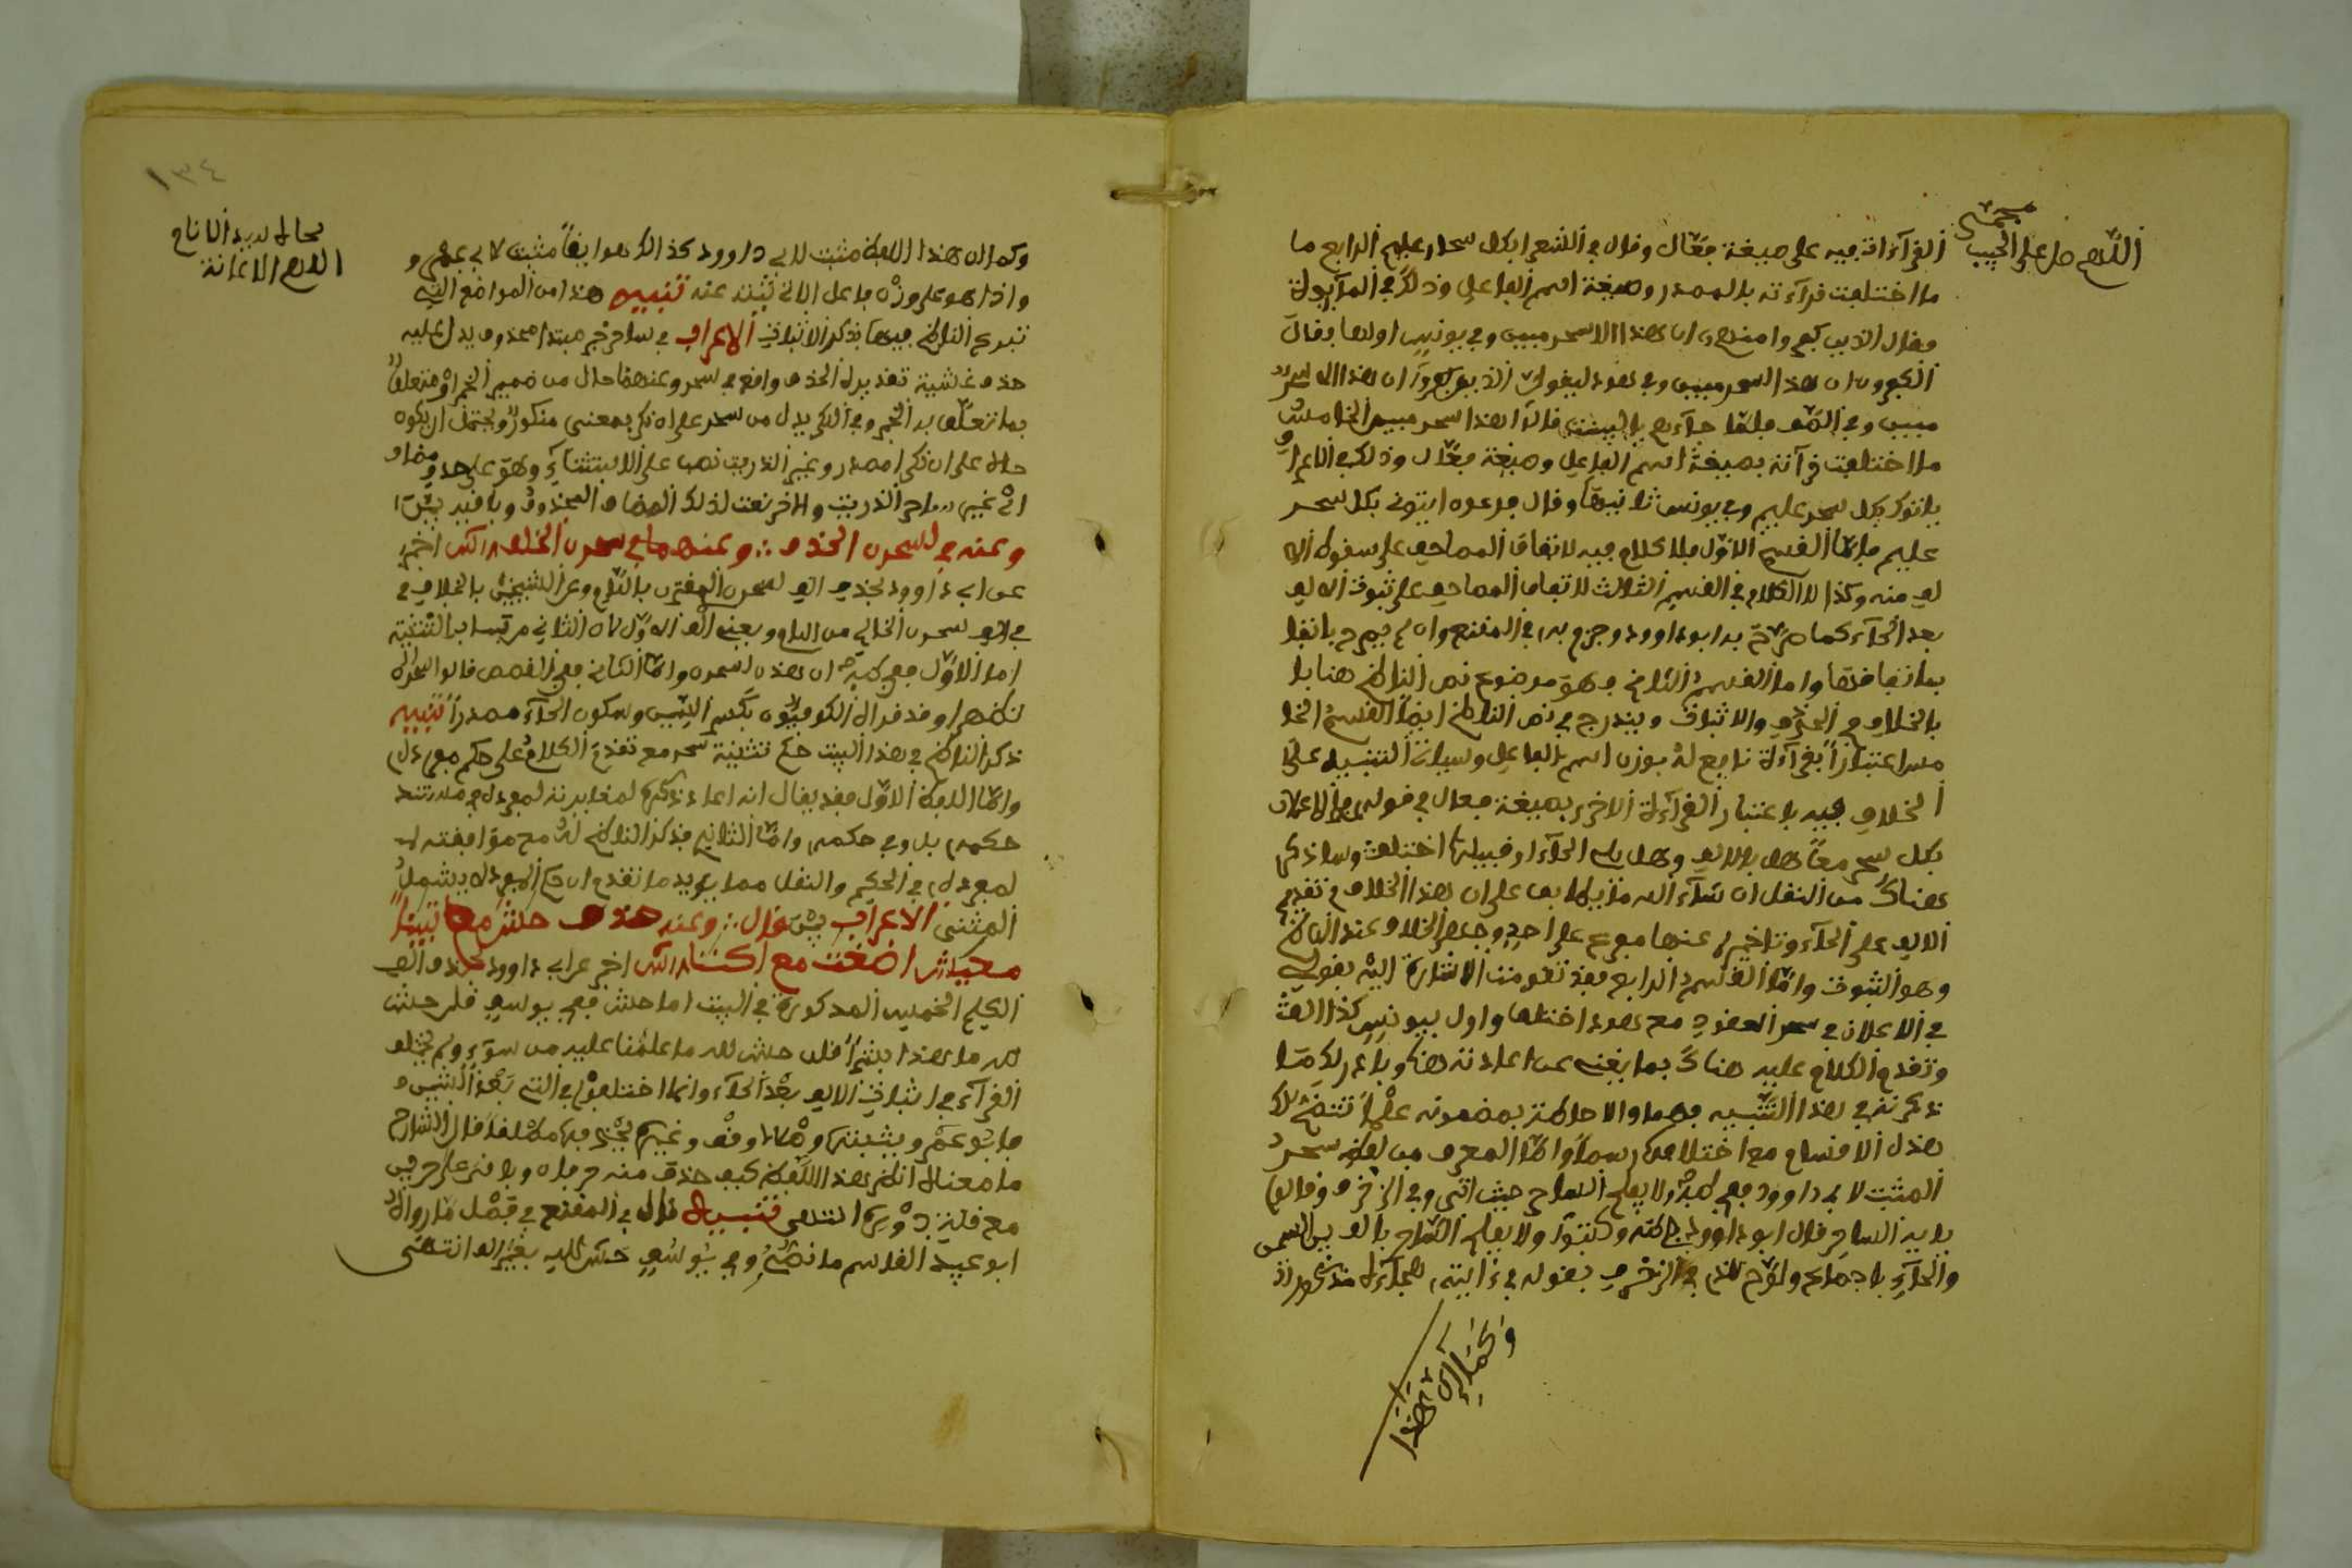 اللهم صل على الحبيب
محمد
القرآء اتـ فيه على صيغة فعّال وقال في الشعرا بكل سحار عليم الرابع ما
ما اختلفت قرآءته بالمصدر وصيغة اسم الفاعل وذلك في المآئدة
فقال الذين كفروا منهم ان هذا الا سحر مبين وفي يونس اولها وقال
الكفرون ان هذا لسحر مبين وفي هود ليقولن الذين كفروا ان هذا الا سحر
مبين وفي الصّف فلمّا جآءهم بالبينت قالوا هذا سحر مبين الخامس
ما اختلفت قرآته بصيغة اسم الفاعل وصيغة فعّال وذلك في الاعراف
ياتوك بكل سحر عليم وفي يونس ثانيها وقال فرعون ايتوني بكل سحر
عليم فامّا القسم الاوّل فلا كلام فيه لاتفاق المصاحف على سقوط الا
لف منه وكذا لا كلام في القسم الثالث لاتفاق المصاحف على ثبوت الالف
بعد الحآء كما صرّح به ابو داوود وجزم به في المقنع وان لم يصرح باتفا
بها اتفاقها واما القسم الثاني وهو موضوع نص الناظم هنا با
بالخلاف في الحذف والاثبات ويندرج في نص الناظم ايضا القسم الخا
مس اعتبارا بقرآءة نافع له بوزن اسم الفاعل وسياتي التنبيه على
الخلاف فيه باعتبار القرآءة الاخرى بصيغة فعال في قوله في الاعلان
بكل سحر معا هل بالالف وهل يلي الحآء او قبيلها اختلف وساذكر
هناك من النقل ان شآء الله ما يطابق على ان هذا الخلاف في تقديم
الالف على الحآء وتاخيرها عنها مفرع على احد وجهي الخلاف عند الناظم
وهو الثبوت وامّا القسم الرابع فقد تقدمت الاشارة اليه بقوله
في الاعلان في سحر العقود مع هود اختلفا واول بيونس كذا الفت
وتقدم الكلام عليه هناك بما يغني عن اعادته هنا وبادر لك ما
ذكرته في هذا التنبيه فهما والاحاطة بمضمونه علما تتضح لك
هذه الاقسام مع اختلافها رسما وامّا المعرف من لفظ سحر
المثبت لابي داوود ففي طه ولا يفلح الساحر حيث اتى وفي الزخرف وقالوا
يايه الساحر قال ابو داوود في طه وكتبوا ولا يفلح السّاحر بالف بين السين
والحآء باجماع ولوّح له في الزخرف بقوله في زابته هجآءه مذكور
وكما ان هذا
١٣٤
وكما ان هذا اللفظ مثبت لابي داوود كذلك هو ايضا مثبت لابي عمرو
واذا هو على وزن فاعل الاتي ثبته عنه تنبيه هذا من المواضع التي
تبرع الناظم فيها بذكر الاثبات الاعراب في ساحر خبر مبتدا محذوف يدل عليه
حذف غشية تقديره الحذف واقع في سحر وعنهما حال من ضمير الخبر او متعلق
بما تعلّق به الخبر وفي الذكر بدل من سحر على ان ذكر بمعنى مذكور ويحتمل ان يكون
حالا على ان ذكرا مصدر وغير الذريت نصب على الاستثنآء وهو على حذف مضاف
اي غير ساحر الذريت والاخر نعت لذلك المضاف المحذوف وباقيه بيّن
وعنه في لسحرن الحذف ∴ وعنهما في سحرن الخلف اخبر
عن ابي داوود بحذف الف لسحرن المقترن باللام وعن الشيخين بالخلاف في
في الف سحرن الخالي من اللام ويعني الف الاوّل لان الثاني مرتسما به التثنية
اما الاوّل ففي طه ان هذن لسحرن وامّا الثاني ففي القصص قالوا سحرن
تظهرا وقد قراه الكوفيون بكسر السين وسكون الحآء مصدرا تنبيه
ذكر الناظم في هذا البيت حكم تثنية سحر مع تقدم الكلام على حكم مفرده
وامّا اللفظ الاوّل فقد يقال انه اعاد ذكره لمغايرته لمفرده فلا تند
حكمه بل وفي حكمه وامّا الثاني فذكر الناظم له مع موافقته لـ
لمفرده في الحكم والنقل مما يويد ما تقدم ان حكم المفرد لا يشمل
المثنى الاعراب بيّن قال ∴ وعنه حذف حاش مع تبينا
معيشا اضغت مع اكننا اخبر عن ابي داوود بحذف الف
الكلم الخمس المذكورة في البيت اما حاش ففي يوسف قلن حاش
لله ما هذا بشرا قلن حاش لله ما علمنا عليه من سوء ولم يختلف
القرآء في اثبات الالف بعد الحآء وانما اختلفوا في التي بعد الشين
فابو عمرو يثبتها وصلا وقف وغيره يحذفها مطلقا قال الشارح
ما معناه انظر هذا اللفظ كيف حذف منه حرفان وبقي على حرفين
مع قلته دوره انتهى تنبيه قال في المقنع في فصل ما رواه
ابو عبيد القاسم ما نصه وفي يوسف حاش لله بغير الف انتهى